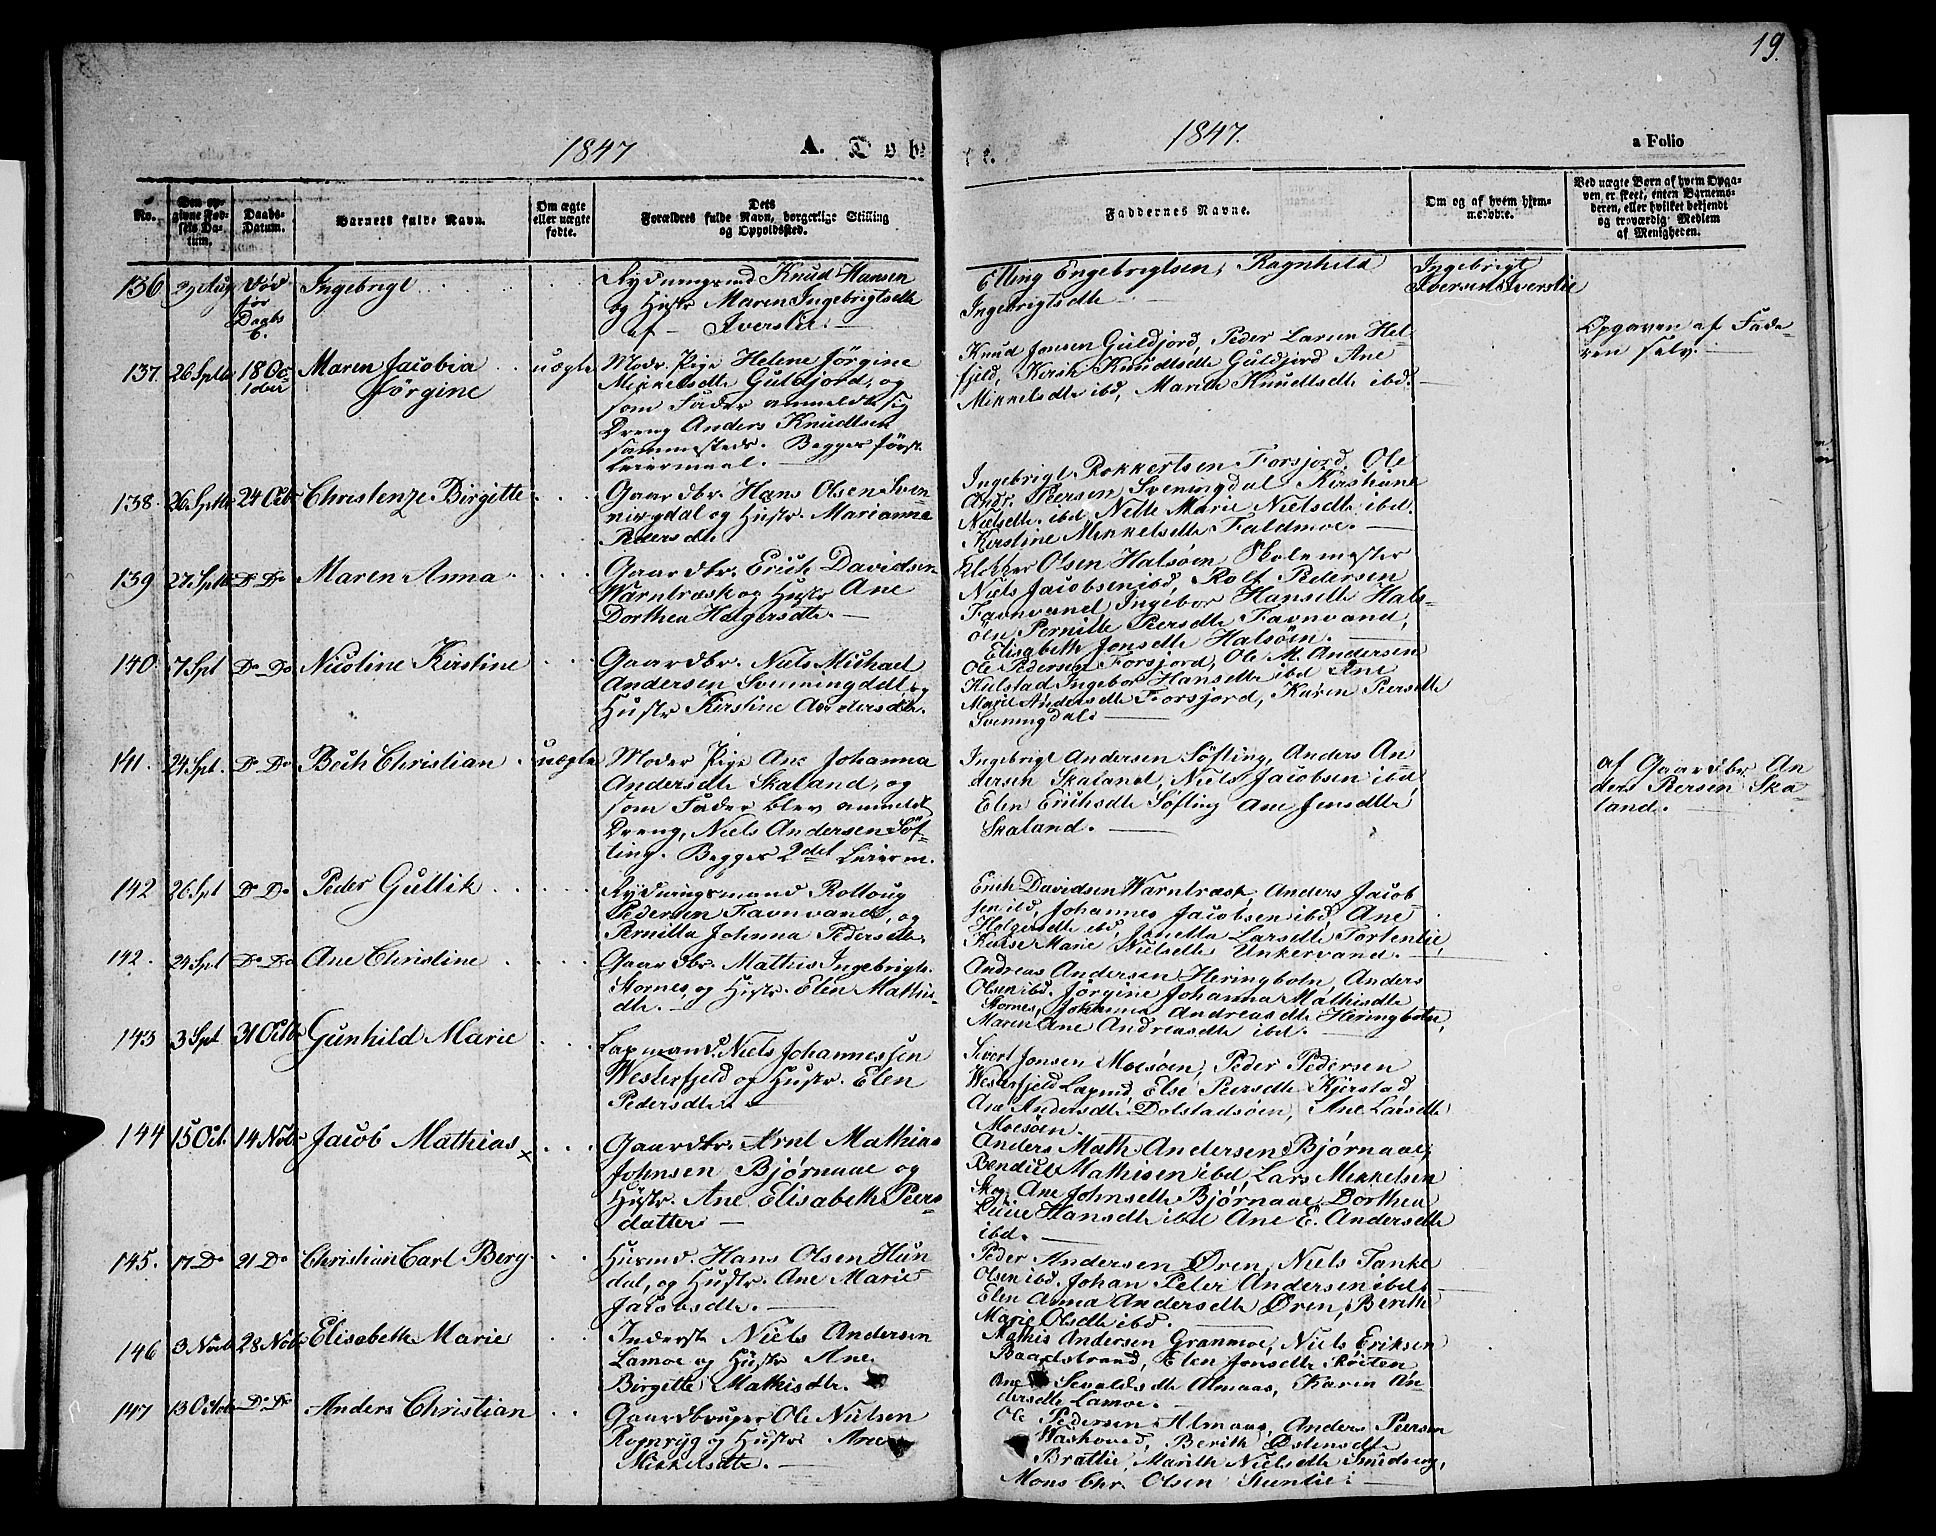 19.
1847
A. Dobte.
1847.
a Folio
No.
Den opgivne Fødsels Datum.
Daabs-Datum.
Barnets fulde Navn.
Om ægte eller uægte fødte.
Dets Forældres fulde Navn, borgerlige Stilling og Opholdssted.
Faddernes Navne.
Om og af hvem hjemmedøbt.
Ved uægte Børn af hvem Opgaven er skeet, enten Barnemoderen, eller hvilket bekjendt og troværdig Medlem af Menigheden.
136 Aug Død
før
Daabs
Ingebrigt
Rydningsmd Knud Hansen
og Hustr Maren Ingebrigtsdtr
af Iverslie.
Elling Engebrigtsen, Ragnhild
Ingebrigtsdtr
Ingebrigt
Iversen Iverslie
137. 26 Septbr 18 Octobr
Maren Jacobia
Jørgine
uægte
Modr Pige Helene Jørgine
Mikkelsdtr Guldfjord, og
som Fader anmeldte sig
Dreng Anders Knudtsen
sammesteds. Begges første
Leiermaal.
Knud Jonsen Guldfjord, Peder Larsen Hel-
fjeld, Kirsti Knudtsdtr Guldfjord Ane
Mikkelsdtr ibd, Marith Knudtsdtr ibd.
Opgaven af Fade-
ren selv.
138. 26 Septbr 24 Octbr Christenze Birgitte
Gaardbr. Hans Olsen Sven-
ningdal og Hustr. Marianne
Pedersdtr
Ingebrigt Rokkertsen Forsjord, Ole
Andr. Peersen Sveningdal Kirstiane
Nielsdtr ibd Nille Marie Nielsdtr ibd.
Kirstine Mikkelsdtr Faldmoe.
139 22 Septbr Do Do Maren Anna
Gaardbr. Erich Davidsen
Warntræsk og Hustr Ane
Dorthea Holgersdtr.
Klokker Olsen Halsøen, Skolemester
Niels Jacobsen ibd, Rolf Pedersen
Favnvand, Ingebor Hansdtr Hals-
øen Pernille Peersdtr Favnvand,
Elisabeth Jonsdtr Halsøen.
140. 7 Spt Do Do Nicoline Kirstine
Gaardbr. Niels Michael
Andersen Svenningdal, og
Hustr Kirstine Andersdtr.
Ole Pedersen Forsjord, Ole M. Andersen
Kulstad Ingebor Hansdtr ibd Ane
Marie Andersdtr Forsjord, Karen Peersdtr
Sveningdal
141. 24 Spt. Do Do Beth Christian
uægte
Moder Pige Ane Johanna
Andersdtr Skaland, og
som Fader blev anmeldt
Dreng, Niels Andersen Søf-
ting. Begges 2det Leierm.
Ingebrigt Andersen Søfting, Anders An-
dersen Skaland, Niels Jacobsen ibd
Elen Erichsdtr Søfting Ane Jensdtr
Skaland.
af Gaardbr. An-
ders Persen Ska-
land.
142 26 Spt Do Do Peder Gullik
Rydningsmand Rolloug
Pedersen Favnvand, og
Pernilla Johnna Pedersdtr.
Erich Davidsen Warntræsk, Anders Jacob-
sen ibd, Johannes Jacobsen ibd, Ane
Holgersdtr ibd, Jonetta Larsdtr Tortenlie,
Marie Nielsdtr Unkervand.
142. 24 Spt Do Do Ane Christine
Gaardbr. Mathis Ingebrigts.
Stornes, og Hustr. Elen Mathis-
dtr.
Andreas Andersen Heringbotn, Anders
Olsen ibd. Jørgine Johanna Mathisdtr
Stornes, Johanna Andreasdtr Heringbotn,
Maren Ane Andreasdtr ibd.
143 3 Spt 31 Octbr Gunhild Marie
Lapmand Niels Johannessen
Westerfjeld og Hustr. Elen
Pedersdtr.
Sivert Jonsen Moesøen, Peder Pedersen
Westerfjeld Lapmd, Else Peersdtr Kjerstad
Ane Andersdtr Dolstadsøen, Ane Larsdtr
Moesøen.
144 15 Oct. 14 Novbr Jacob Mathias x
Gaardbr. Arnt Mathias
Johnsen Bjørnaae og
Hustr. Ane Elisabeth Peers-
datter
Anders Math Andersen Bjørnaae,
Bendict Mathisen ibd, Lars Mikkelsen
Skog Ane Johnsdtr Bjørnaae, Dorthea
Lucie Hansdtr ibd Ane E. Andersdtr
ibd.
145. 17 Do 21 Do Christian Carl Berg
Husmd. Hans Olsen Hun-
dal, og Hustr. Ane Marie
Jacobsdtr.
Peder Andersen Øren, Niels Tanke
Olsen ibd. Johan Peter Andersen ibd
Elen Anna Andersdtr Øren, Berith
Marie Olsdtr ibd.
146 3 Novb 28 Novbr Elisabeth Marie
Inderst Niels Andersen
Lamoe og Hustr Ane
Birgitte Mathisdtr.
Mathis Andersen Granmoe, Niels Eriksen
Baadstrand, Elen Jonsdtr
Ane Sevaldsdtr Almaas, Karen An-
dersdtr Lamoe.
147 13 Octbr Do Do Anders Christian
Gaardbruger Ole Nielsen
Rognryg og Hustr Ane
Mikkelsdtr.
Ole Pedersen Almaas, Anders Peersen
Berith Østensdtr
Brattlie, Marith Nielsdtr Smidseng,
Mons Chr. Olsen Stenlie